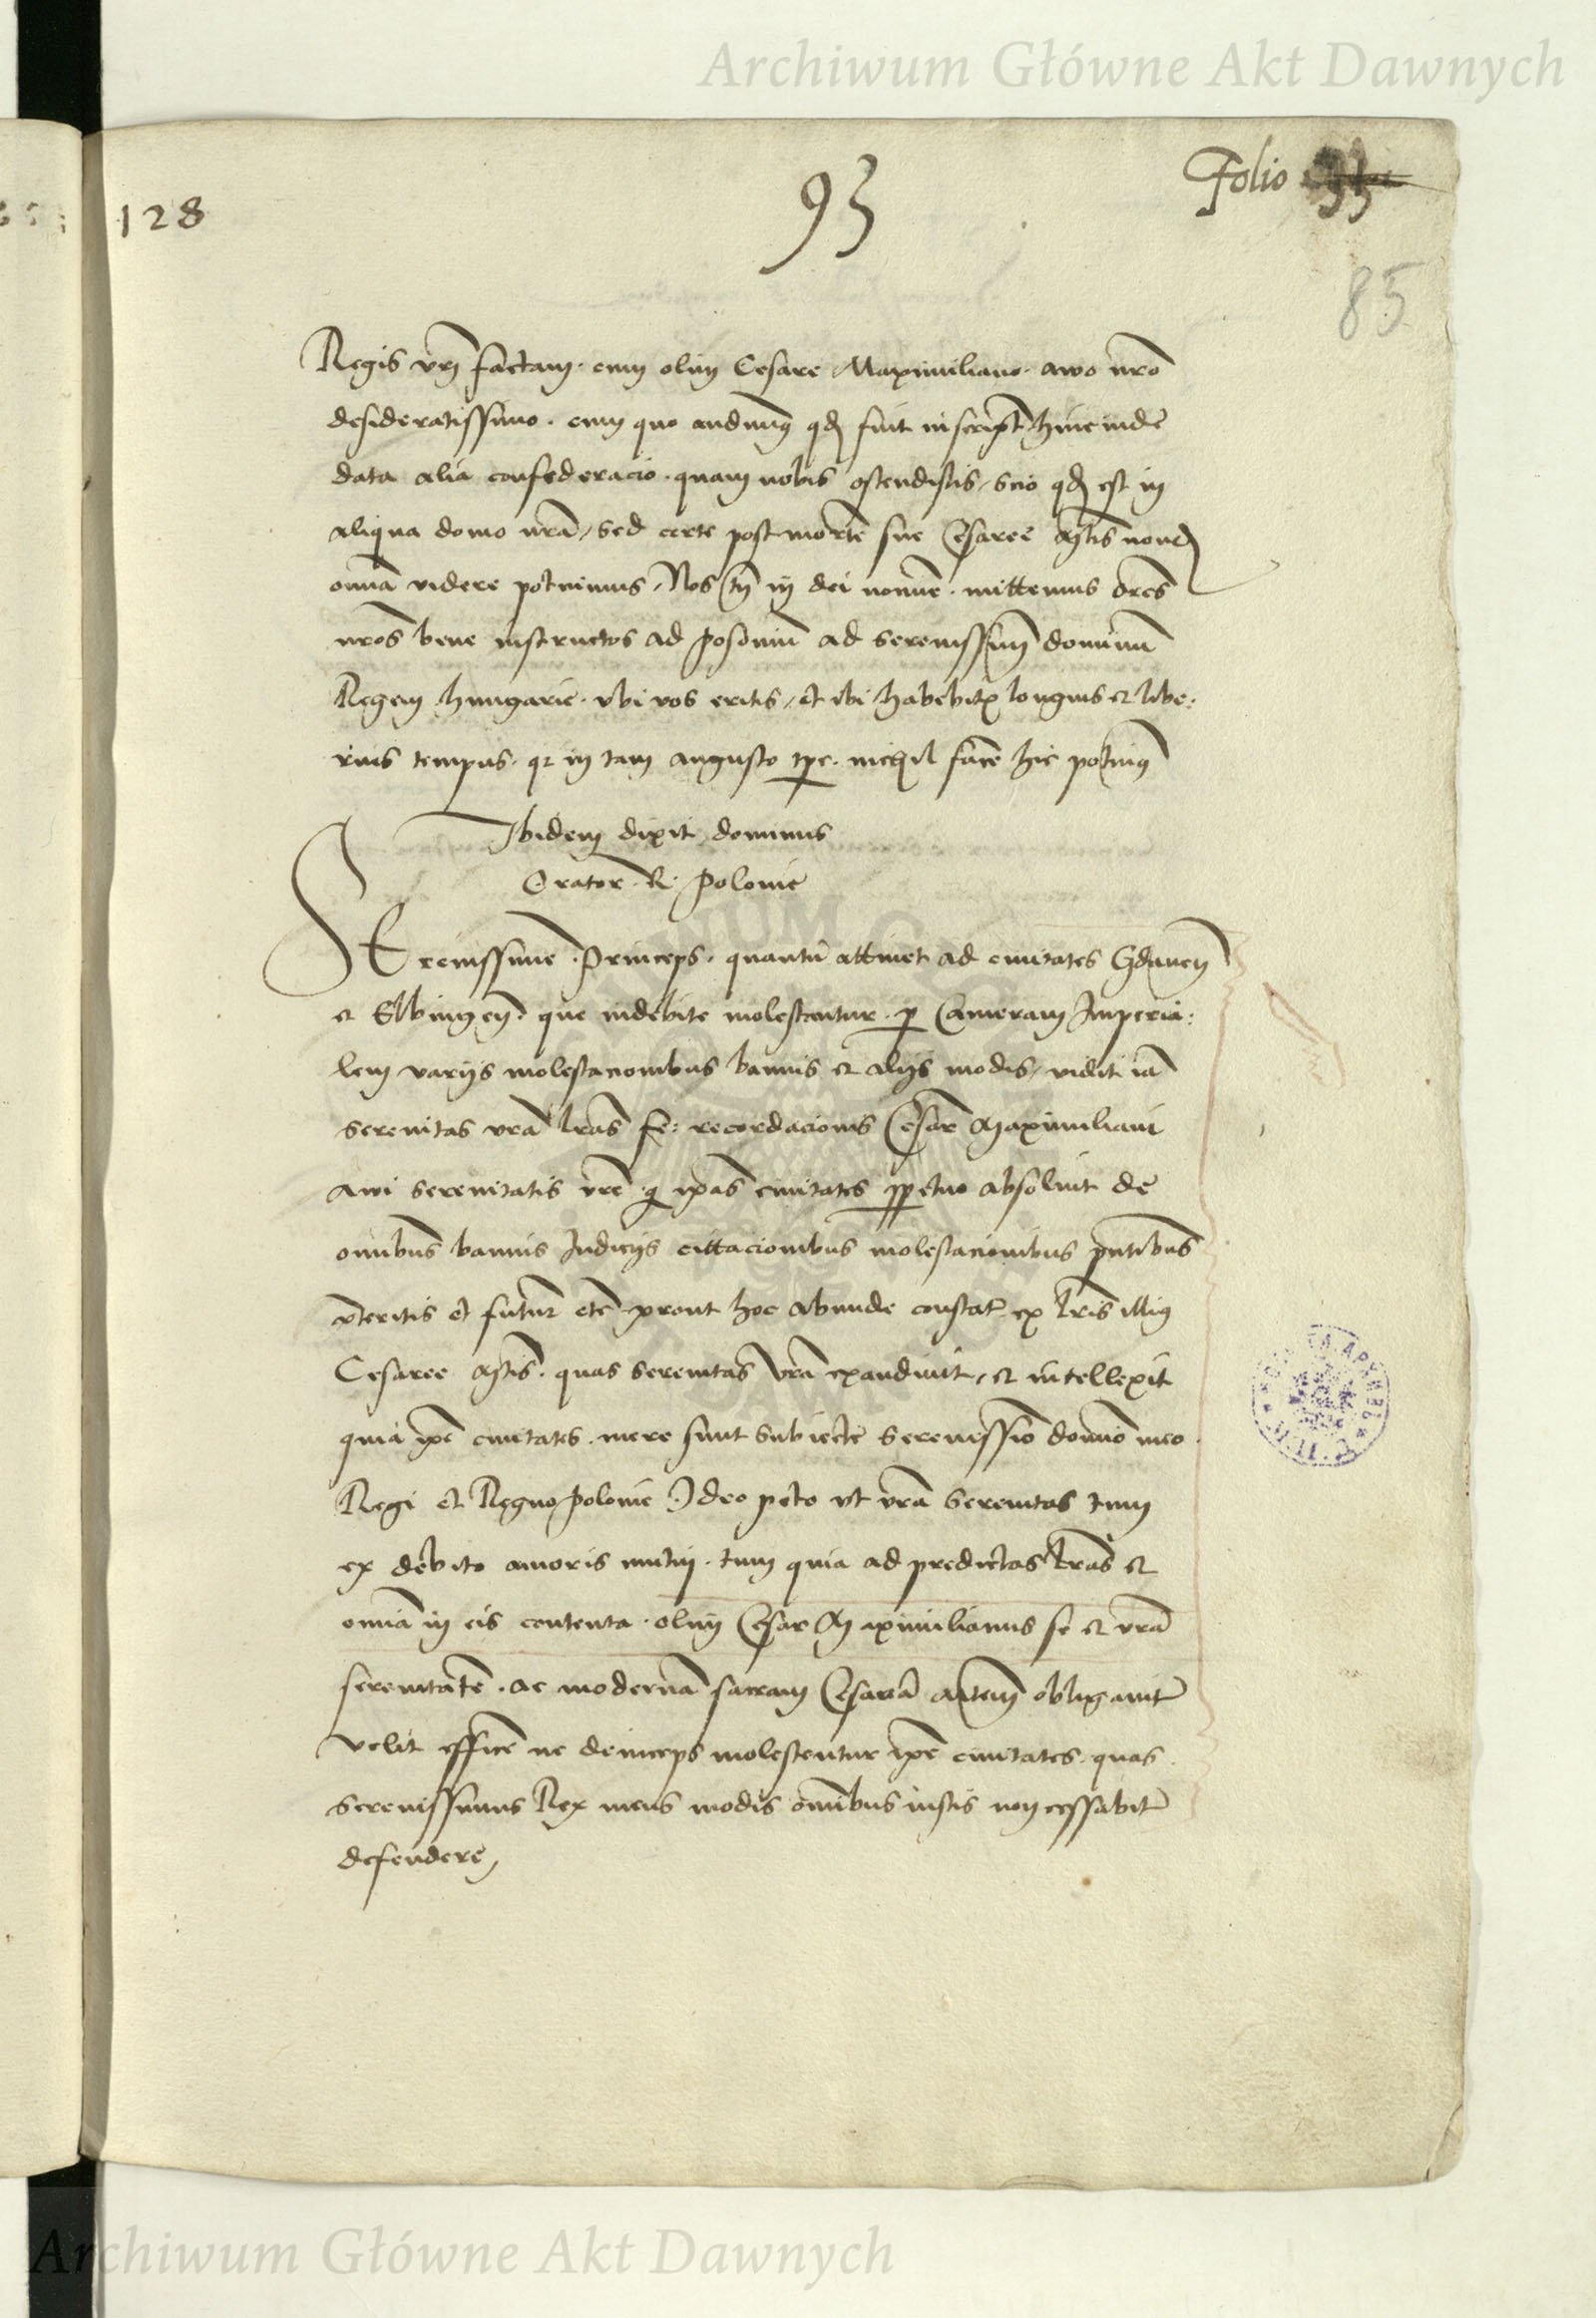 Archiwum Główne Akt Dawnych
Folio
128
93
85
Regis vrī factam · cum olim Cesare Maximiliano · avo nrō
desideratissimo · cum quo audimus qd fuit inscript hincinde
data alia confederacio · quam nobis ostendistis, scio qd est in
aliqua domo nrā, sed certe post mortē sue Cesareē Mtis nond
omīa videre potuimus, Nos tn in dei nomīe · mittemus orēs
nros bene instructos ad posoniū ad serenissimū dominū
Regem hungarie · vbi vos eritis, et ibi habebitis longius et libe:
rius tempus · qr in tam angusto tpe · nichil facē hic potuimus
Ibidem dixit dominus
Orator · R · polonie
SErenissime · Princeps · quantū attinet ad civitates Gdaneñ
et Elbingeñ · que indebite molestantur · p Cameram Imperia:
lem varijs molestacionibus bannis et alijs modis, vidit iā
serenitas vrā lrās fe: recordacionis Cesarē Maximiliani
avi serenitatis vrē · q ipās civitates ppetuo absolvit de
omībus bannis Judicijs cittacionibus molestacionibus pntibus
pteritis et futur etc prout hoc abunde constat ex lris illius
Cesaree Mtis · quas serenitas vrā exaudivit, et intellexit
quia ipē civitates · mere sunt subiecte serenissīo domīo meo ·
Regi et Regno polonie · Ideo peto vt vrā serenitas tum
ex debito amoris mutui · tum quia ad predictas lrās et
omīa in eis contenta · olim Cesar Maximilianus se et vrā
serenitatē · ac modernā sacram Cesareā Mtem obligavit
velit efficē ne deinceps molestentur ipē civitates · quas ·
serenissimus Rex meus modis omībus iustis non cessabit
defendere,
Archiwum Główne Akt Dawnych